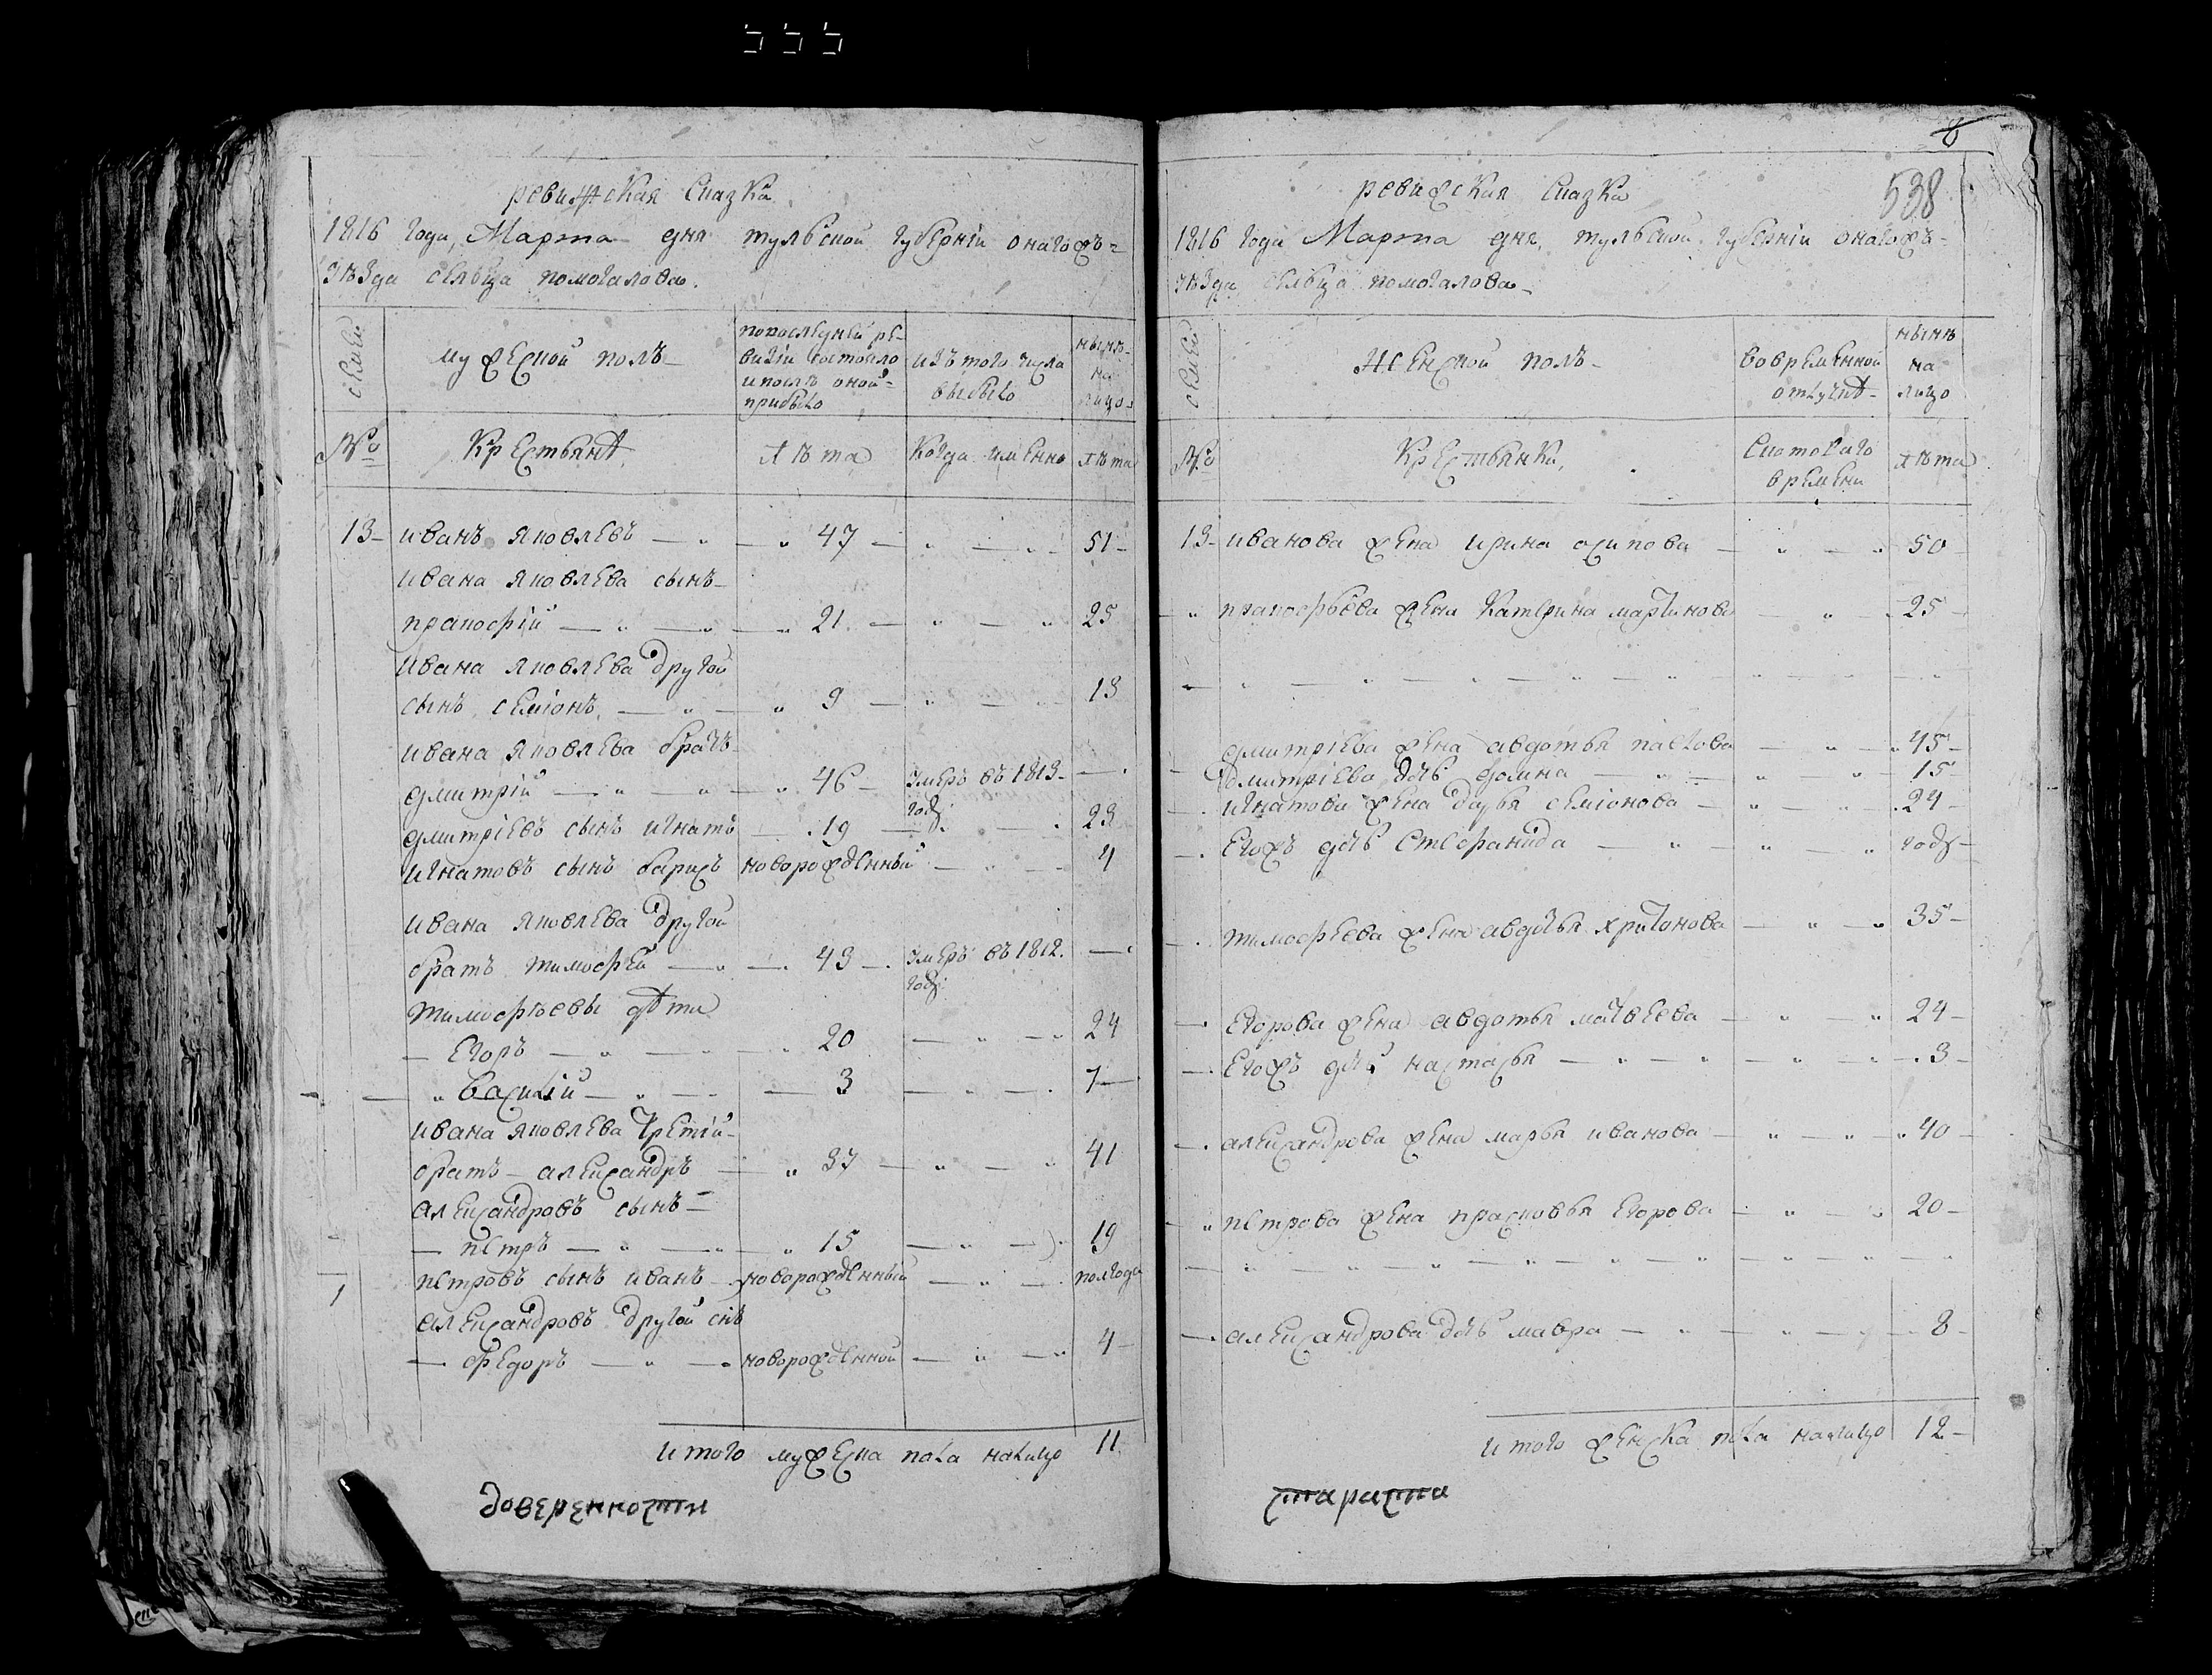 555
ревижская сказка
1816 года, Марта дня тульской губернiи оногожъ=
уѣзда сельца помогалова.
семьи
мужеской полъ
попоследней ре-
визiи состояло
и послѣ оной=
прибыло
изъ того числа
выбыло
нынѣ-
на
лицо
№
крестьянѣ
лѣта
когда именно
лѣта
13 иванъ яковлевъ 47 51
ивана яковлева сынъ
пракофiй 21 25
ивана яковлева другой
сынъ семiонъ 9 13
ивана яковлева братъ
дмитрiй 46 умеръ въ 1813
году
дмитрiевъ сынъ игнатъ 19 23
игнатовъ сынъ барисъ новорожденный 4
ивана яковлева другой
братъ тимофей 43 умеръ въ 1812
году
тимофѣевы дѣти
егоръ 20 24
василiй 3 7
ивана яковлева третiй
братъ александръ 37 41
александровъ сынъ
петръ 15 19
петровъ сынъ иванъ новорожденный полгода
александровъ другой снъ
федоръ новорожденной 4
итого мужеска пола налицо 11
доверенности
8
538
ревижская сказка
1816 года Марта дня, тульской губернiи оногожъ-
уѣзда сельца помогалова
семьи
женской полъ
вовременной
отлучкѣ
нынѣ
на
лицо
№
крестьянки
скотораго
времени
лѣта
13 иванова жена ирина осипова 50
пракофьева жена катерина мартинова 25
дмитрiева жена авдотья павлова 45
дмитрiева дочь домна 15
игнатова жена дарья семiонова 24
егожъ дочь стефанида году
тимофеева жена авдотья хритонова 35
егорова жена авдотья матвеева 24
егожъ дочь настасья 3
александрова жена марья иванова 40
петрова жена прасковья егорова 20
александрова дочь мавра 8
итого женска пола налицо 12
староста